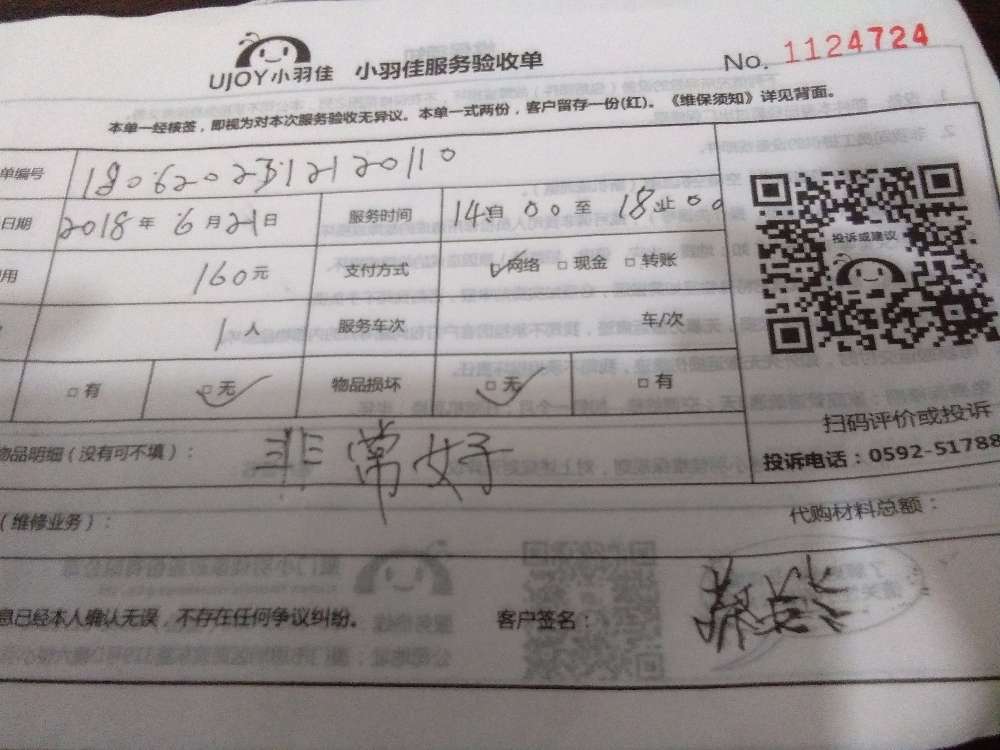 UJOY小羽佳 小羽佳服务验收单 No. 1124724
本单一经核签,即视为对本次服务验收无异议。本单一式两份,客户留存一份(红)。《维保须知》详见背面。
单编号
日期 2018年6月21日 服务时间 14自00至18止00
用 160元 支付方式 网络 □现金 □转账
1人 服务车次 车/次
□有 □无 物品损坏 □无 □有
投诉或建议
扫码评价或投诉
投诉电话:0592-51788
物品明细(没有可不填): 非常好
(维修业务): 代购材料总额:
息已经本人确认无误,不存在任何争议纠纷。 客户签名: